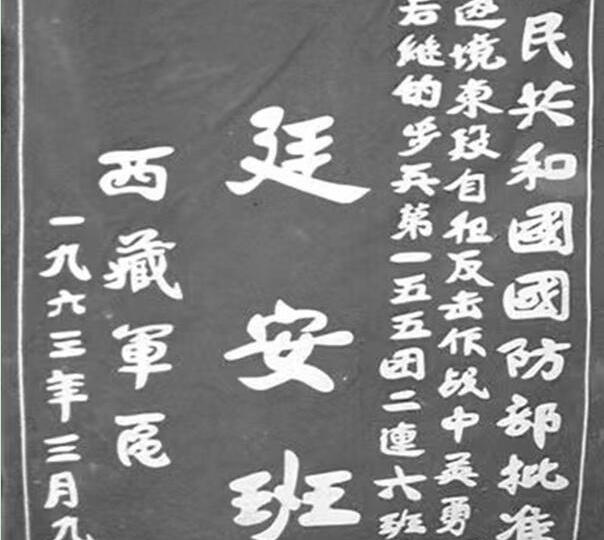 民共和國國防部批准
边境東段自卫反击作战中英勇
若继的步兵第一五五团二連六班
廷安班
西藏軍區
一九六三年三月九